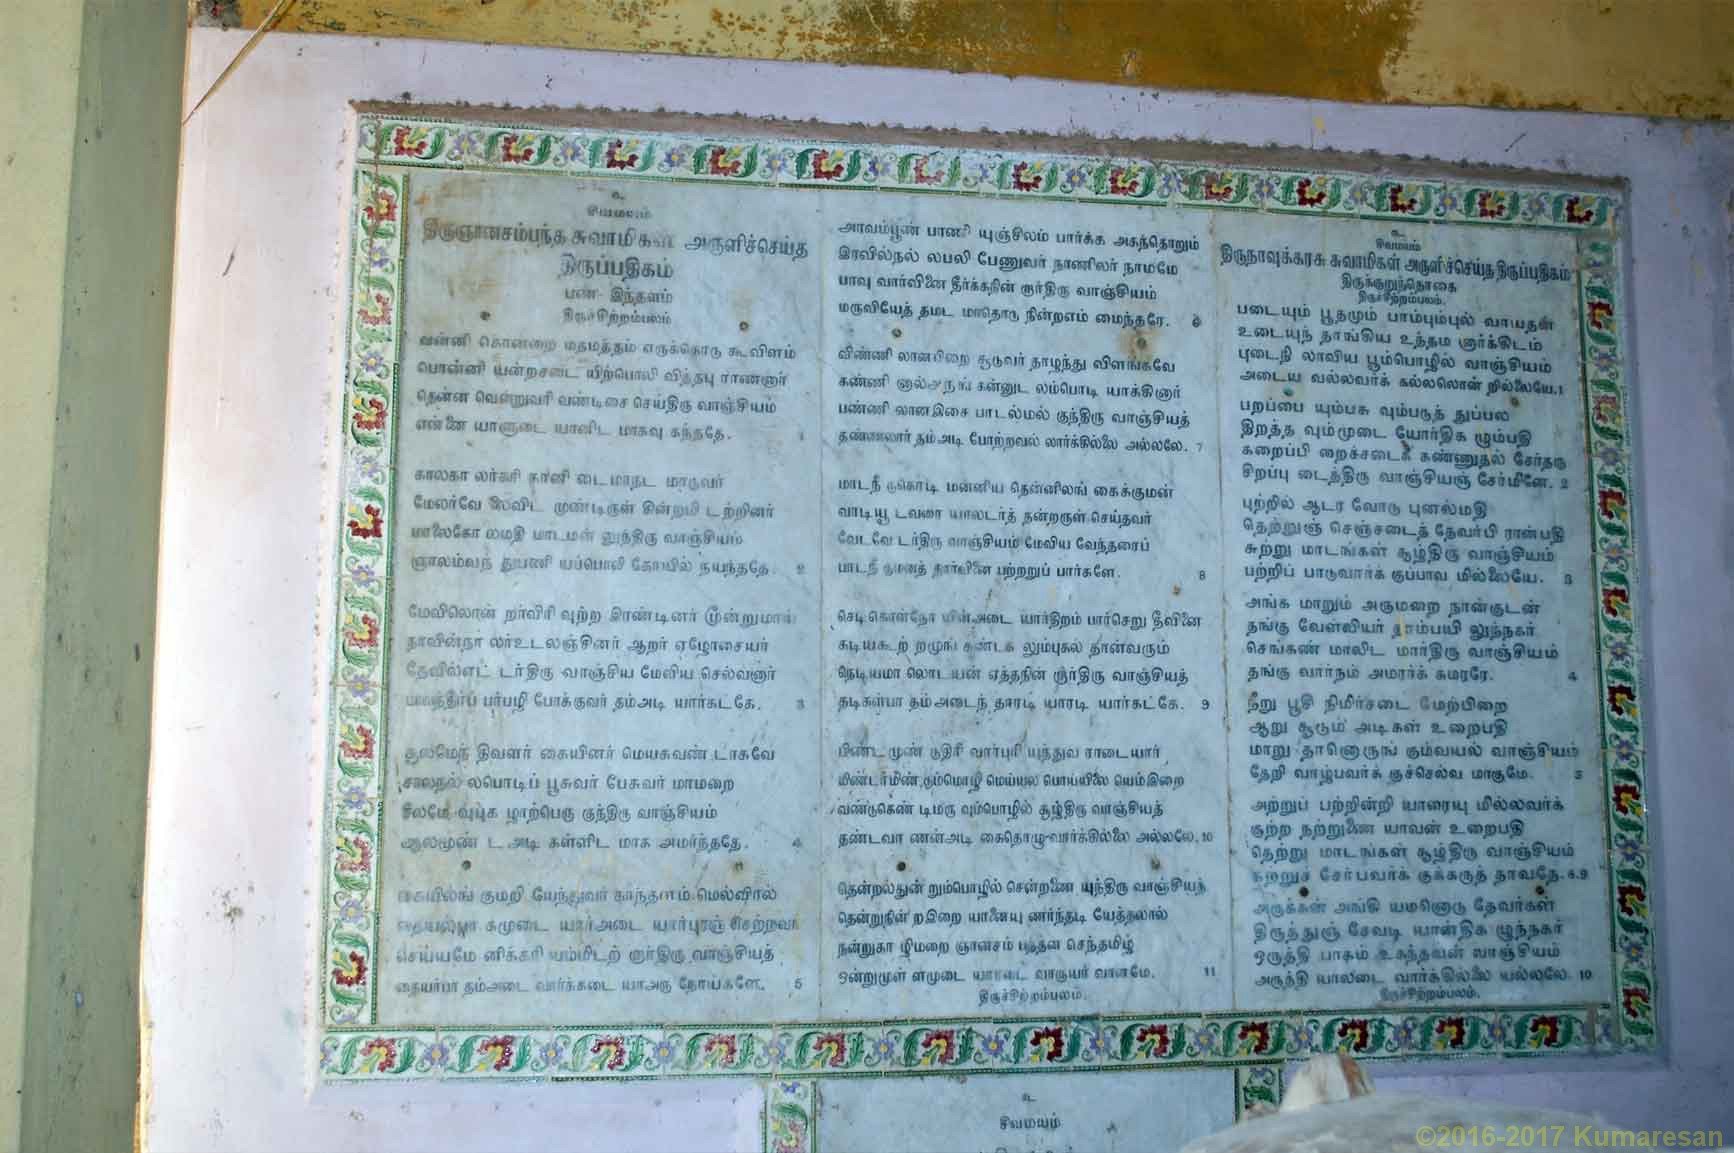 உ
சிவமயம்
திருஞானசம்பந்த சுவாமிகள் அருளிச்செய்த
திருப்பதிகம்
பண் இந்தளம்
திருச்சிற்றம்பலம்
வன்னி கொன்றை மதமத்தம் எருக்கொடு கூவிளம்
பொன்னி யன்றசடை யிற்பொலி வித்தபு ராணனார்
தென்ன வென்றுவரி வண்டிசை செய்திரு வாஞ்சியம்
என்னை யாளுடை யானிட மாகவு கந்ததே. 1
காலகா லர்கரி கானி டை மாநட மாடுவர்
மேலர்வே லைவிட முண்டிருள் கின்றமி டற்றினர்
மாலைகோ லமதி மாடமன் னுந்திரு வாஞ்சியம்
ஞாலம்வந் துபணி யப்பொலி கோயில் நயந்ததே. 2
மேவிலொன் றர்விரி வுற்ற இரண்டினர் மூன்றுமாய்
நாவின்நா லர்உடலஞ்சினர் ஆறர் ஏழோசையர்
தேவில்எட் டர்திரு வாஞ்சிய மேவிய செல்வனார்
பாவந்தீர்ப் பர்பழி போக்குவர் தம்அடி யார்கட்கே. 3
சூலமேந் திவளர் கையினர் மெய்சுவண் டாகவே
சாலநல் லபொடிப் பூசுவர் பேசுவர் மாமறை
சீலமே வுபுக ழாற்பெரு குந்திரு வாஞ்சியம்
ஆலமுண் ட அடி கள்ளிட மாக அமர்ந்ததே. 4
கையிலங் குமறி யேந்துவர் காந்தளம் மெல்விரல்
தையல்பா கமுடை யார்அடை யார்புரஞ் செற்றவர்
செய்யமே னிக்கரி யம்மிடற் றார்திரு வாஞ்சியத்
தையர்பா தம்அடை வார்க்கடை யாஅரு நோய்களே. 5
அரவம்பூண் பாணி யுஞ்சிலம் பார்க்க அகந்தொறும்
இரவில்நல் லபலி பேணுவர் நாணிலர் நாமமே
பரவு வார்வினை தீர்க்கநின் றார்திரு வாஞ்சியம்
மருவியேத் தமட மாதொடு நின்றஎம் மைந்தரே. 6
விண்ணி லானபிறை சூடுவர் தாழ்ந்து விளங்கவே
கண்ணி னால்அநங் கன்னுட லம்பொடி யாக்கினார்
பண்ணி லானஇசை பாடல்மல் குந்திரு வாஞ்சியத்
தண்ணலார் தம்அடி போற்றவல் லார்க்கில்லை அல்லலே. 7
மாடநீ டுகொடி மன்னிய தென்னிலங் கைக்குமன்
வாடியூ டவரை யாலடர்த் தன்றருள் செய்தவர்
வேடவே டர்திரு வாஞ்சியம் மேவிய வேந்தரைப்
பாடநீ டுமனத் தார்வினை பற்றறுப் பார்களே. 8
செடி கொள்நோ யின்அடை யார்திறம் பார்செறு தீவினை
கடியகூற் றமுங் கண்டக லும்புகல் தான்வரும்
நெடியமா லொடயன் ஏத்தநின் றார்திரு வாஞ்சியத்
தடிகள்பா தம்அடைந் தாரடி யாரடி யார்கட்கே. 9
பிண்ட முண் டுதிரி வார்பிரி யுந்துவ ராடையார்
மிண்டர்மிண் டும்மொழி மெய்யல பொய்யிலை யெம்இறை
வண்டுகெண் டிமரு வும்பொழில் சூழ்திரு வாஞ்சியத்
தண்டவா ணன்அடி கைதொழு வார்க்கில்லை அல்லலே. 10
தென்றல்துன் றும்பொழில் சென்றணை யுந்திரு வாஞ்சியத்
தென்றுநின் றஇறை யானையு ணர்ந்தடி யேத்தலால்
நன்றுகா ழிமறை ஞானசம் பந்தன செந்தமிழ்
ஒன்றுமுள் ளமுடை யாரடை வாருயர் வானமே. 11
திருச்சிற்றம்பலம்.
உ
சிவமயம்
திருநாவுக்கரசு சுவாமிகள் அருளிச்செய்த திருப்பதிகம்
திருக்குறுந்தொகை
திருச்சிற்றம்பலம்.
படையும் பூதமும் பாம்பும்புல் வாயதள்
உடையுந் தாங்கிய உத்தம னார்க்கிடம்
புடைநி லாவிய பூம்பொழில் வாஞ்சியம்
அடைய வல்லவர்க் கல்லலொன் றில்லையே. 1
பறப்பை யும்பசு வும்படுத் துப்பல
திறத்த வும்முடை யோர்திக ழும்பதி
கறைப்பி றைச்சடைக் கண்ணுதல் சேர்தரு
சிறப்பு டைத்திரு வாஞ்சியஞ் சேர்மினே. 2
புற்றில் ஆடர வோடு புனல்மதி
தெற்றுஞ் செஞ்சடைத் தேவர்பி ரான்பதி
சுற்று மாடங்கள் சூழ்திரு வாஞ்சியம்
பற்றிப் பாடுவார்க் குப்பாவ மில்லையே. 3
அங்க மாறும் அருமறை நான்குடன்
தங்கு வேள்வியர் தாம்பயி லுந்நகர்
செங்கண் மாலிட மார்திரு வாஞ்சியம்
தங்கு வார்நம் அமரர்க் கமரரே. 4
நீறு பூசி நிமிர்சடை மேற்பிறை
ஆறு சூடும் அடிகள் உறைபதி
மாறு தானொருங் கும்வயல் வாஞ்சியம்
தேறி வாழ்பவர்க் குச்செல்வ மாகுமே. 5
அற்றுப் பற்றின்றி யாரையு மில்லவர்க்
குற்ற நற்றுணை யாவன் உறைபதி
தெற்று மாடங்கள் சூழ்திரு வாஞ்சியம்
கற்றுச் சேர்பவர்க் குக்கருத் தாவதே. 6.9
அருக்கன் அங்கி யமனொடு தேவர்கள்
திருத்துஞ் சேவடி யான்திக ழுந்நகர்
ஒருத்தி பாகம் உகந்தவன் வாஞ்சியம்
அருத்தி யாலடை வார்க்கில்லை யல்லலே. 10
திருச்சிற்றம்பலம்.
உ
சிவமயம்
©2016-2017 Kumaresan